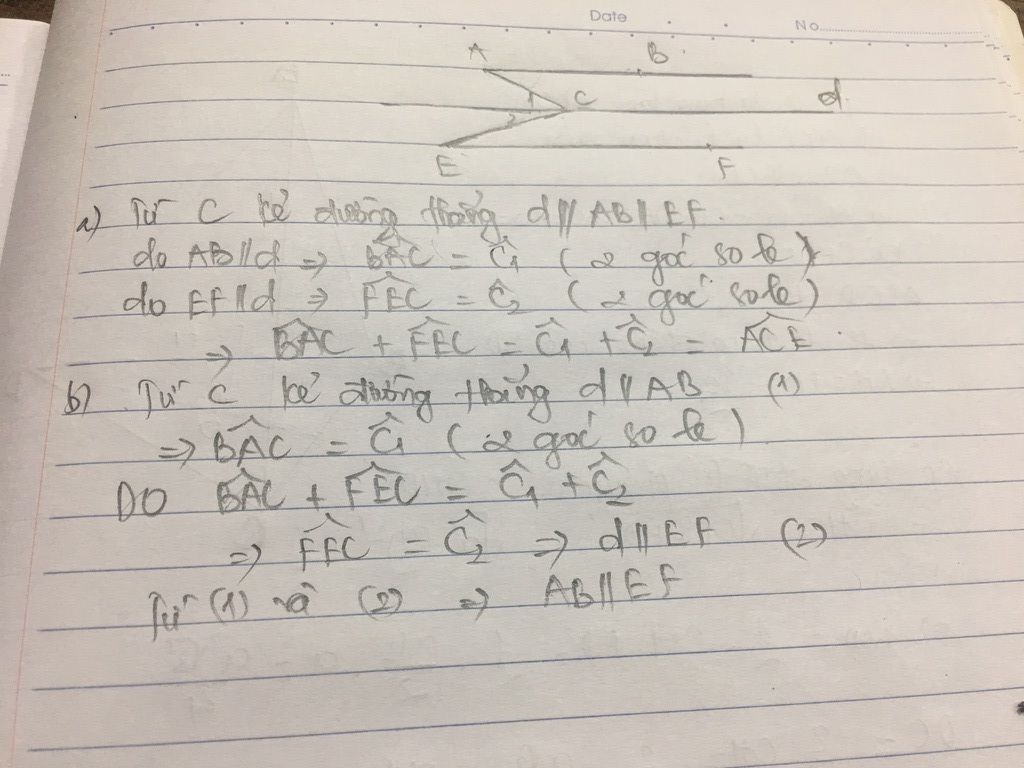 Date
No
A B
1 C d
2
E F
a) Từ C kẻ đường thẳng d // AB // EF.
do AB // d ⇒ \widehat{BAC} = \hat{C_1} (2 góc so le)
do EF // d ⇒ \widehat{FEC} = \hat{C_2} (2 góc so le)
⇒ \widehat{BAC} + \widehat{FEC} = \hat{C_1} + \hat{C_2} = \widehat{ACE}.
b) Từ C kẻ đường thẳng d // AB (1)
⇒ \widehat{BAC} = \hat{C_1} (2 góc so le)
DO \widehat{BAC} + \widehat{FEC} = \hat{C_1} + \hat{C_2}
⇒ \widehat{FEC} = \hat{C_2} ⇒ d // EF (2)
Từ (1) và (2) ⇒ AB // EF